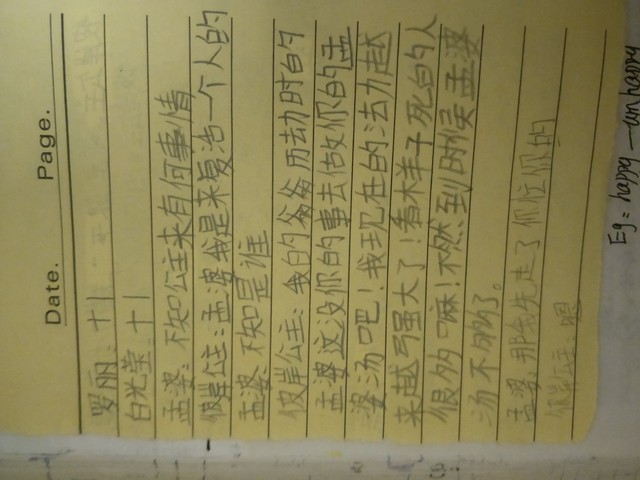 Date. Page.
罗丽：十1
白光莹 十1
孟婆：不知公主来有何事情
彼岸公主：孟婆我是来复活一个人的
孟婆：不知是谁
彼岸公主：我的爷爷历劫时的
孟婆这没你的事去做你的孟
婆汤吧！我现在的法力越
来越弓强大了！看木羊子死的人
很多嘛！不然到时候孟婆
汤不够了。
孟婆：那我先走了
公主：嗯
Eg = happy — unhappy